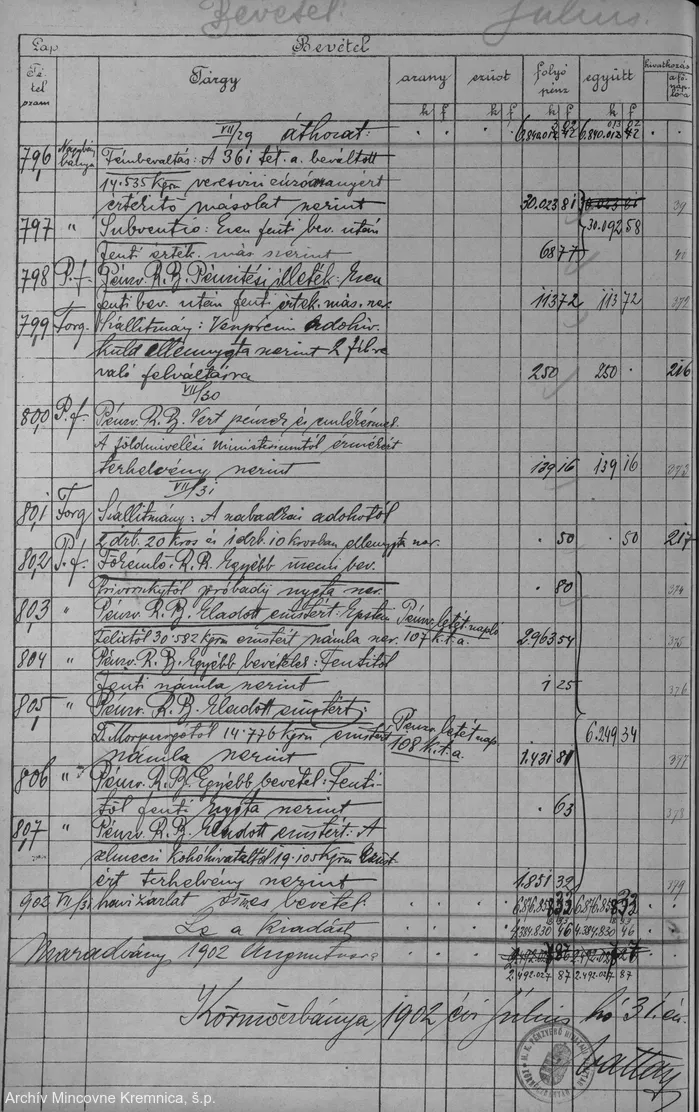 Bevétel. Július.
Lap Bevétel
Tétel szám Tárgy arany ezüst folyó pénz együtt hivatkozás a főnaplóra
k f k f k f k f
VII/29 áthozat:
796 Nagybánya Fémbeváltás: A 361 tét. a. beváltott
14.535 kgrm veresvizi
értesítő másolat szerint 30.023 81 39
797 " Subventio: Ezen fenti bev. után 30.092 58
fenti érték. más szerint 68 77
798 P.f. Pénzv. R.B. Pénzítési illeték: Ezen
fenti bev. után fenti értek. más. sze. 113 72 113 72 372
799 Forg. Szállítmány: Veszprém adóhiv.
küld ellennyugta szerint 2 fillre
való felváltásra 250 250 216
VII/30
800 P.f. Pénzv. R.B. Vert pénzek és emlékérmek
A földmivelési Ministeriumtól érmékért
terhelvény szerint 139 16 139 16 373
VII/31
801 Forg Szállítmány: A szabadkai adóhiv.től
2 drb. 20 kros és 1 drb. 10 krosban ellennyugta szer. 50 50 217
802 P.f. Főkémlő. R.R. Egyébb nemü bev.
próbadíj nyugta szer. 80 374
803 " Pénzv. R.B. Eladott ezüstért: Epstein Pénzv. letét napló
Felixtől 30.582 kgrm ezüstért számla szer. 107 k.t.a. 2.963 54 375
804 " Pénzv. R.B. Egyébb bevételek: Fentitől
fenti számla szerint 1 25 376
805 " Pénzv. R.B. Eladott ezüstért:
D. Morpurgótól 14.776 kgrm ezüstért Pénzv. letét nap 6.249 34
számla szerint 108 k.t.a. 1.431 80 377
806 " Pénzv. R.B. Egyébb bevétel: Fenti-
től fenti nyugta szerint 63 378
807 " Pénzv. R.B. Eladott ezüstért: A
selmeczi kohóhivataltól 19.105 kgrm ezüst-
ért terhelvény szerint 1.851 32 379
902 VII/31 havi zárlat összes bevétel
Le a kiadást 4.384.830 46 4.384.830 46
Maradvány 1902 Augusztusra
2.492.027 87 2.492.027 87
Körmöczbánya, 1902 évi Július hó 31 én.
Archív Mincovne Kremnica, š.p.